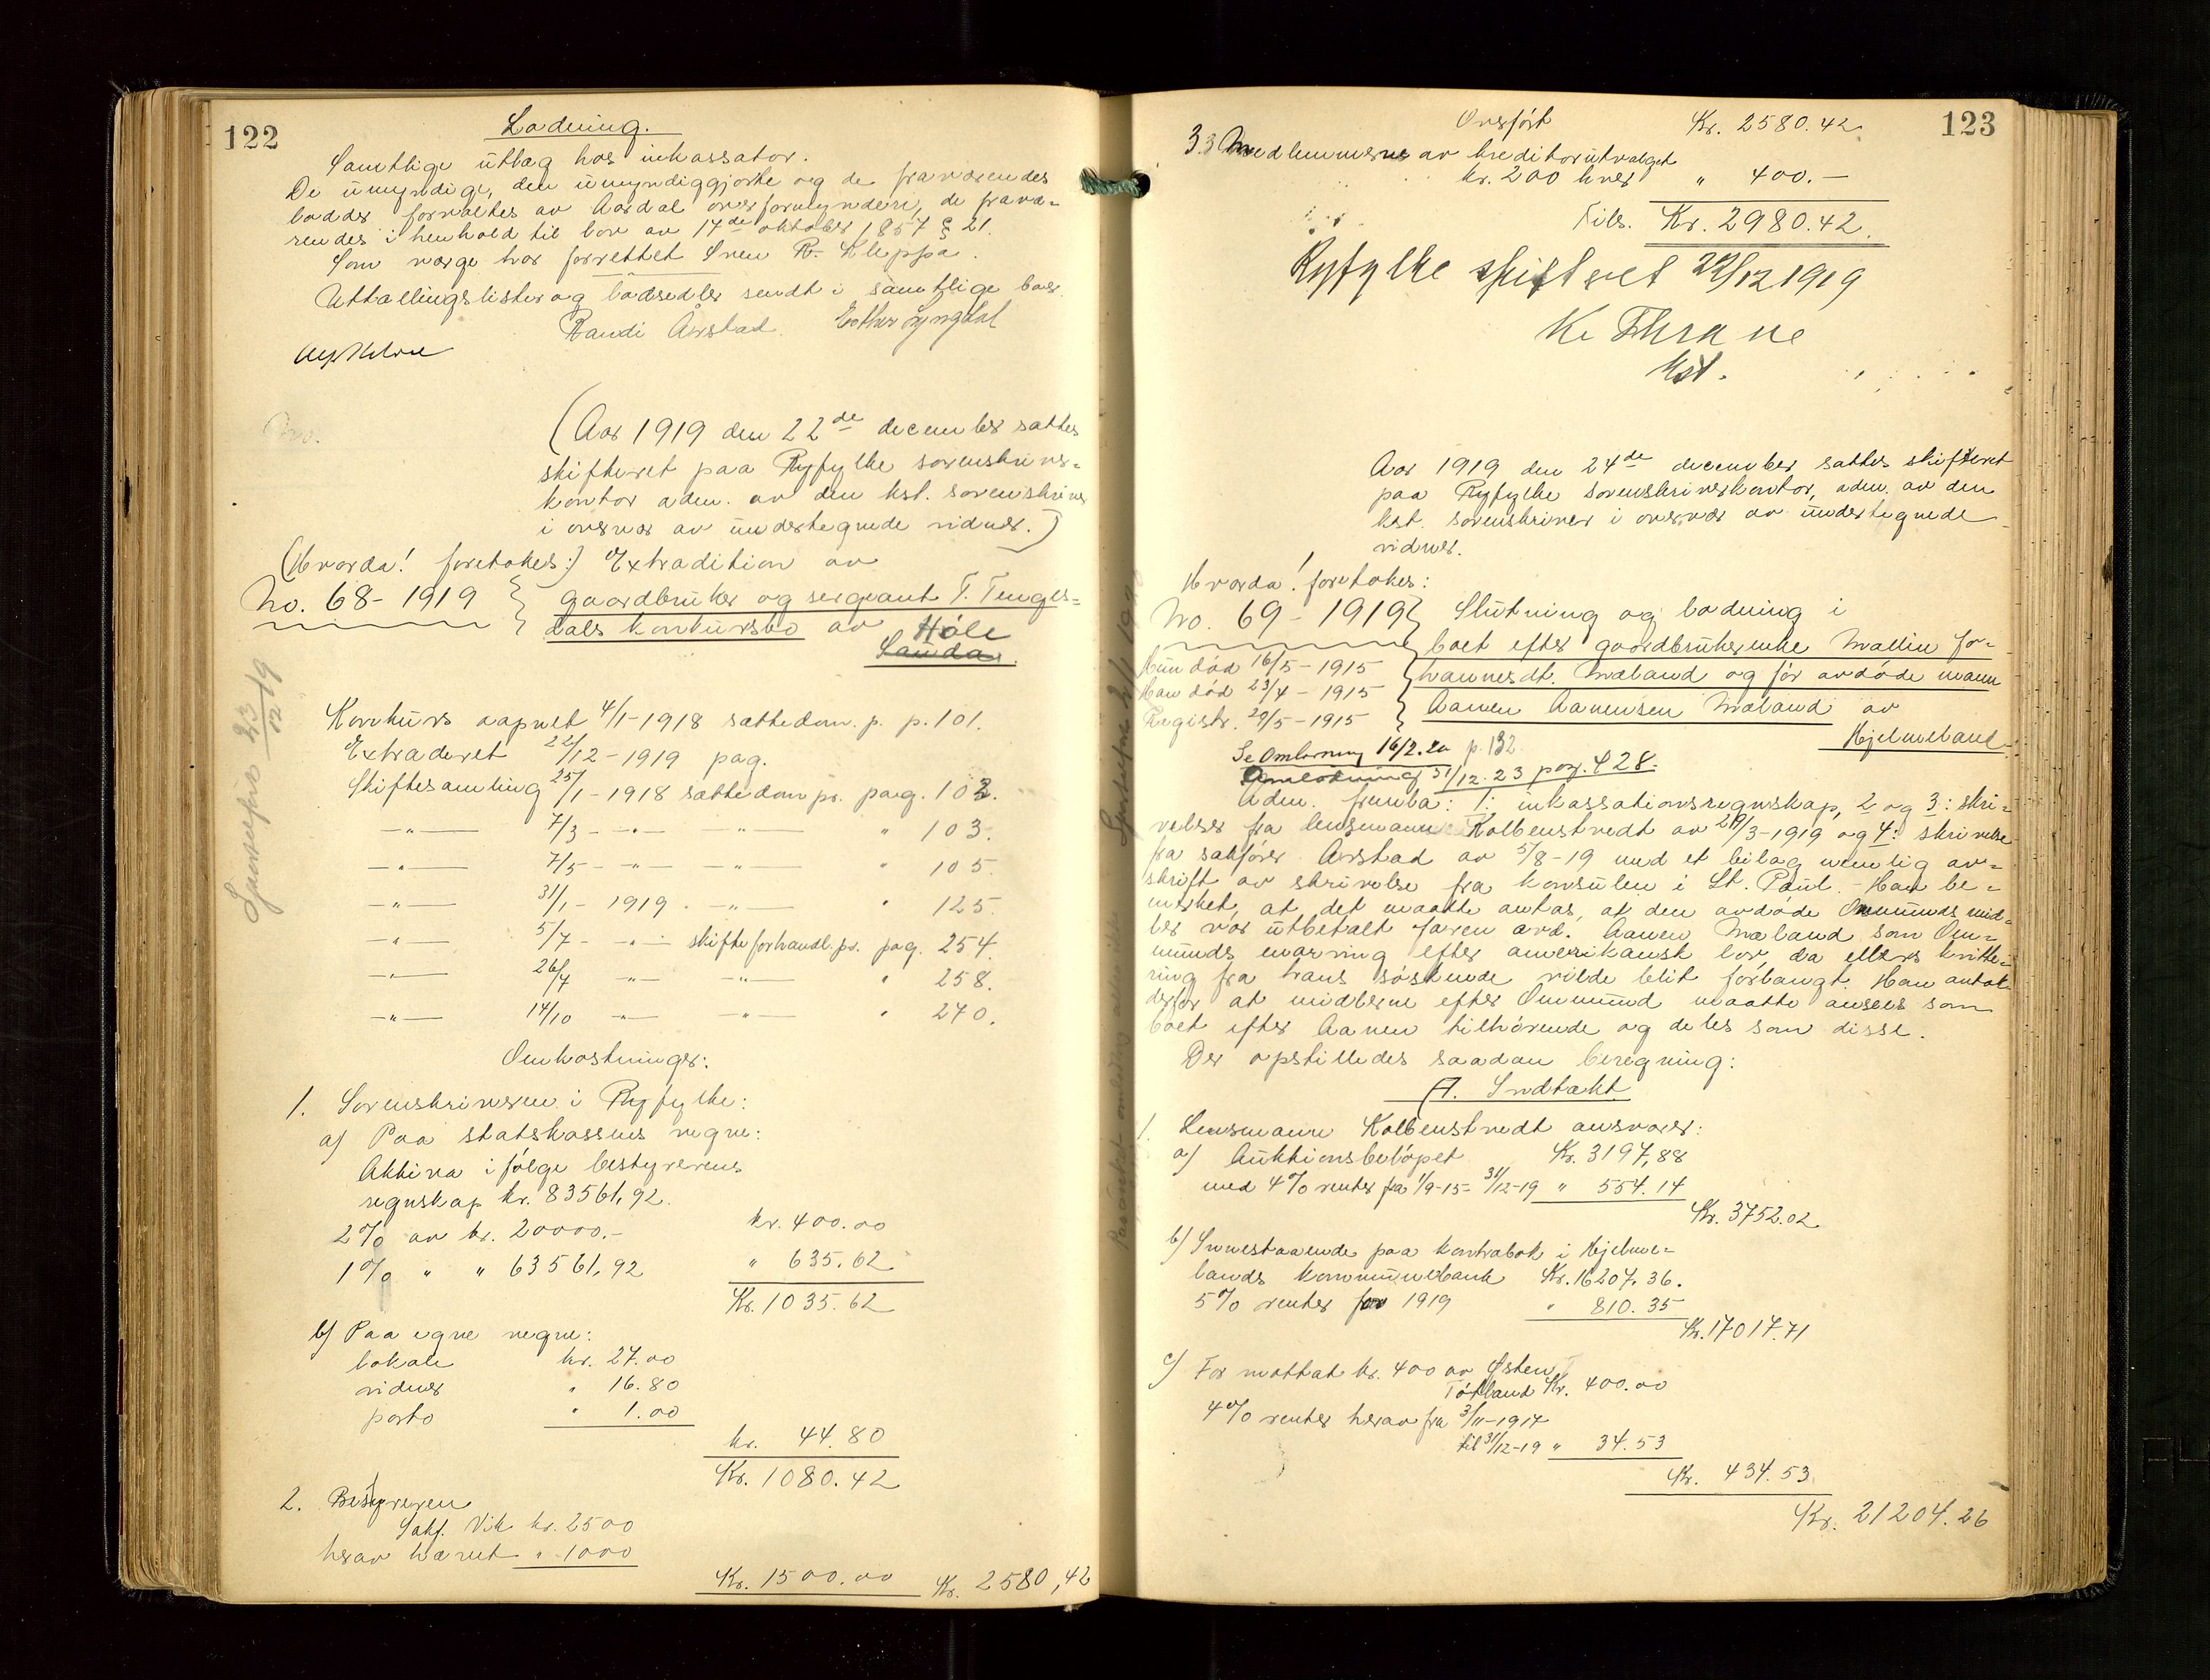 122
Lodning.
Samtlige utlæg hos inkassator.
De umyndige, den umyndiggjorte og de fraværendes
lodder forvaltes av Aardal overformynderi, de fravæ-
rendes i henhold til lov av 17de oktober 1857 § 21.
Som værge har forrettet Sven R. Kleppa.
Uttællingslister og lodsedler sendt i samtlige boer.
Randi Aarstad. Esther Lyngdal
(Aar 1919 den 22de december sattes
skifteret paa Ryfylke sorenskriver-
kontor adm. av den kst. sorenskriver
i overvær av undertegnede vidner.)
(Hvorda! foretokes:) Extradition av
No. 68 - 1919 } gaardbruker og sergeant T. Tenges-
dals konkursbo av Høle
Sauda.
23/12 19
Konkurs aapnet 4/1-1918 sættedom. p. p. 101.
Extraderet 22/12-1919 pag.
Skiftesamling 25/1-1918 sættedom pr. pag. 102.
—"— 7/3 - —"— —"— " 103.
—"— 7/5 - —"— —"— " 105.
—"— 31/1 - 1919. —"— " 125.
—"— 5/7 - —"— skifteforhandl. pr. pag. 254.
—"— 26/7 —"— —"— " 258.
—"— 14/10 —"— —"— " 270.
Omkostninger:
1. Sorenskriveren i Ryfylke:
a) Paa statskassens vegne:
Aktiva ifølge bestyrerens
regnskap kr. 83561,92.
2% av kr. 20000.- kr. 400.00
1% " " 63561,92 " 635.62
Kr. 1035.62
b) Paa egne vegne:
lokale kr. 27.00
vidner " 16.80
porto " 1.00
kr. 44.80
Kr. 1080.42
2. Bestyreren
Sakf. Vik kr. 2500
herav hævet " 1000
Kr. 1500.00 Kr. 2580,42
123
Overført Kr. 2580.42
3. 3 Medlemmerne av kreditorutvalget
kr. 200 hver " 400.—
Tils. Kr. 2980.42.
Ryfylke skifteret 22/12 1919
K. Thrane
kst.
Aar 1919 den 24de december sattes skifteret
paa Ryfylke sorenskriverkontor, adm. av den
kst. sorenskriver i overvær av undertegnede
vidner.
Hvorda! foretokes:
No. 69 - 1919 } Slutning og lodning i
boet efter gaardbrukerenke Mallin Jo-
Hun død 16/5 - 1915
hannesdt. Mæland og før avdøde mann
Han død 23/4 - 1915
Aanen Aanensen Mæland av
Registr. 29/5 - 1915
Hjelmeland
Se Omlodning 16/2.20 p. 132
Omlodning 31/12.23 pag. 428.
Adm. fremla: 1: inkassationsregnskap, 2 og 3: skri-
velser fra lensmann Kolbenstvedt av 29/3-1919 og 4: skrivelse
fra sakfører Aarstad av 5/8-19 med et bilag nemlig av-
skrift av skrivelse fra konsulen i St. Paul. - Han be-
merket, at det maatte antas, at den avdøde Ommunds mid-
ler var utbetalt faren avd. Aanen Mæland som Om-
munds enarving efter amerikansk lov, da ellers kvitte-
ring fra hans søskende vilde blit forlangt. Han antok
derfor at midlerne efter Ommund maatte ansees som
boet efter Aanen tilhørende og deles som disse.
Der opstilledes saadan beregning:
A. Indtækt
1. Lensmann Kolbenstvedt ansvarer:
a) Auktionsbeløpet Kr. 3197,88
med 4% renter fra 1/9-15 - 31/12-19 " 554.14
Kr. 3752.02
b) Innestaaende paa kontrabok i Hjelme-
lands kommunebank Kr. 16207.36.
5% renter for 1919 " 810.35
Kr. 17017.71
c) For mottat kr. 400 av Østen
Tøtland Kr. 400.00
4% renter herav fra 3/11-1917
til 31/12-19 " 34.53
Kr. 434.53
Kr. 21204.26